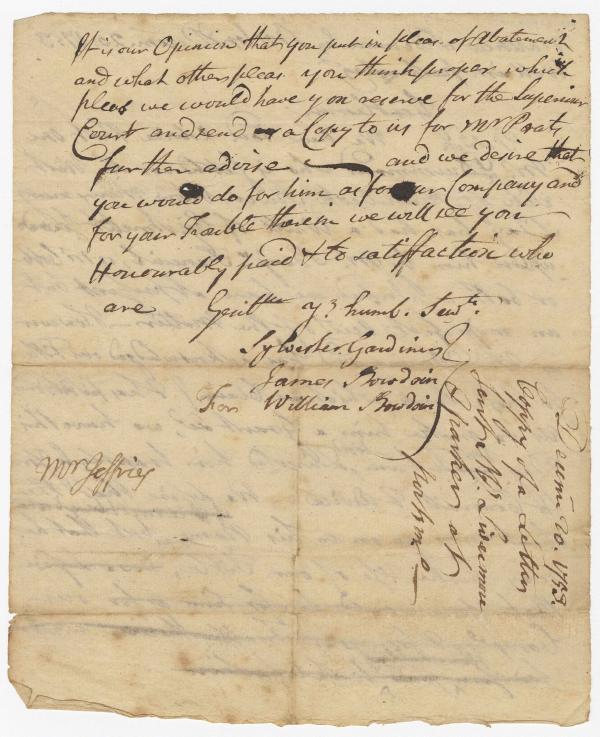 It is our Opinion that you put in pleas of Abatement
and what other pleas you think proper which
pleas we would have you reserve for the Superiour
Court and send a Copy to us for Mr Prats
further advise and we desire that
you would do for him as for our Company and
for your Trouble therein we will see you
Honourably paid & to satisfaction who
are Gentlmn yr humb. Servts.
Sylvester Gardiner
James Bowdoin
For William Bowdoin
Mr Jeffries
Decemr 20. 1753.
Coppy of a Letter
sent Mr. Livermore
& parker at
portsmo